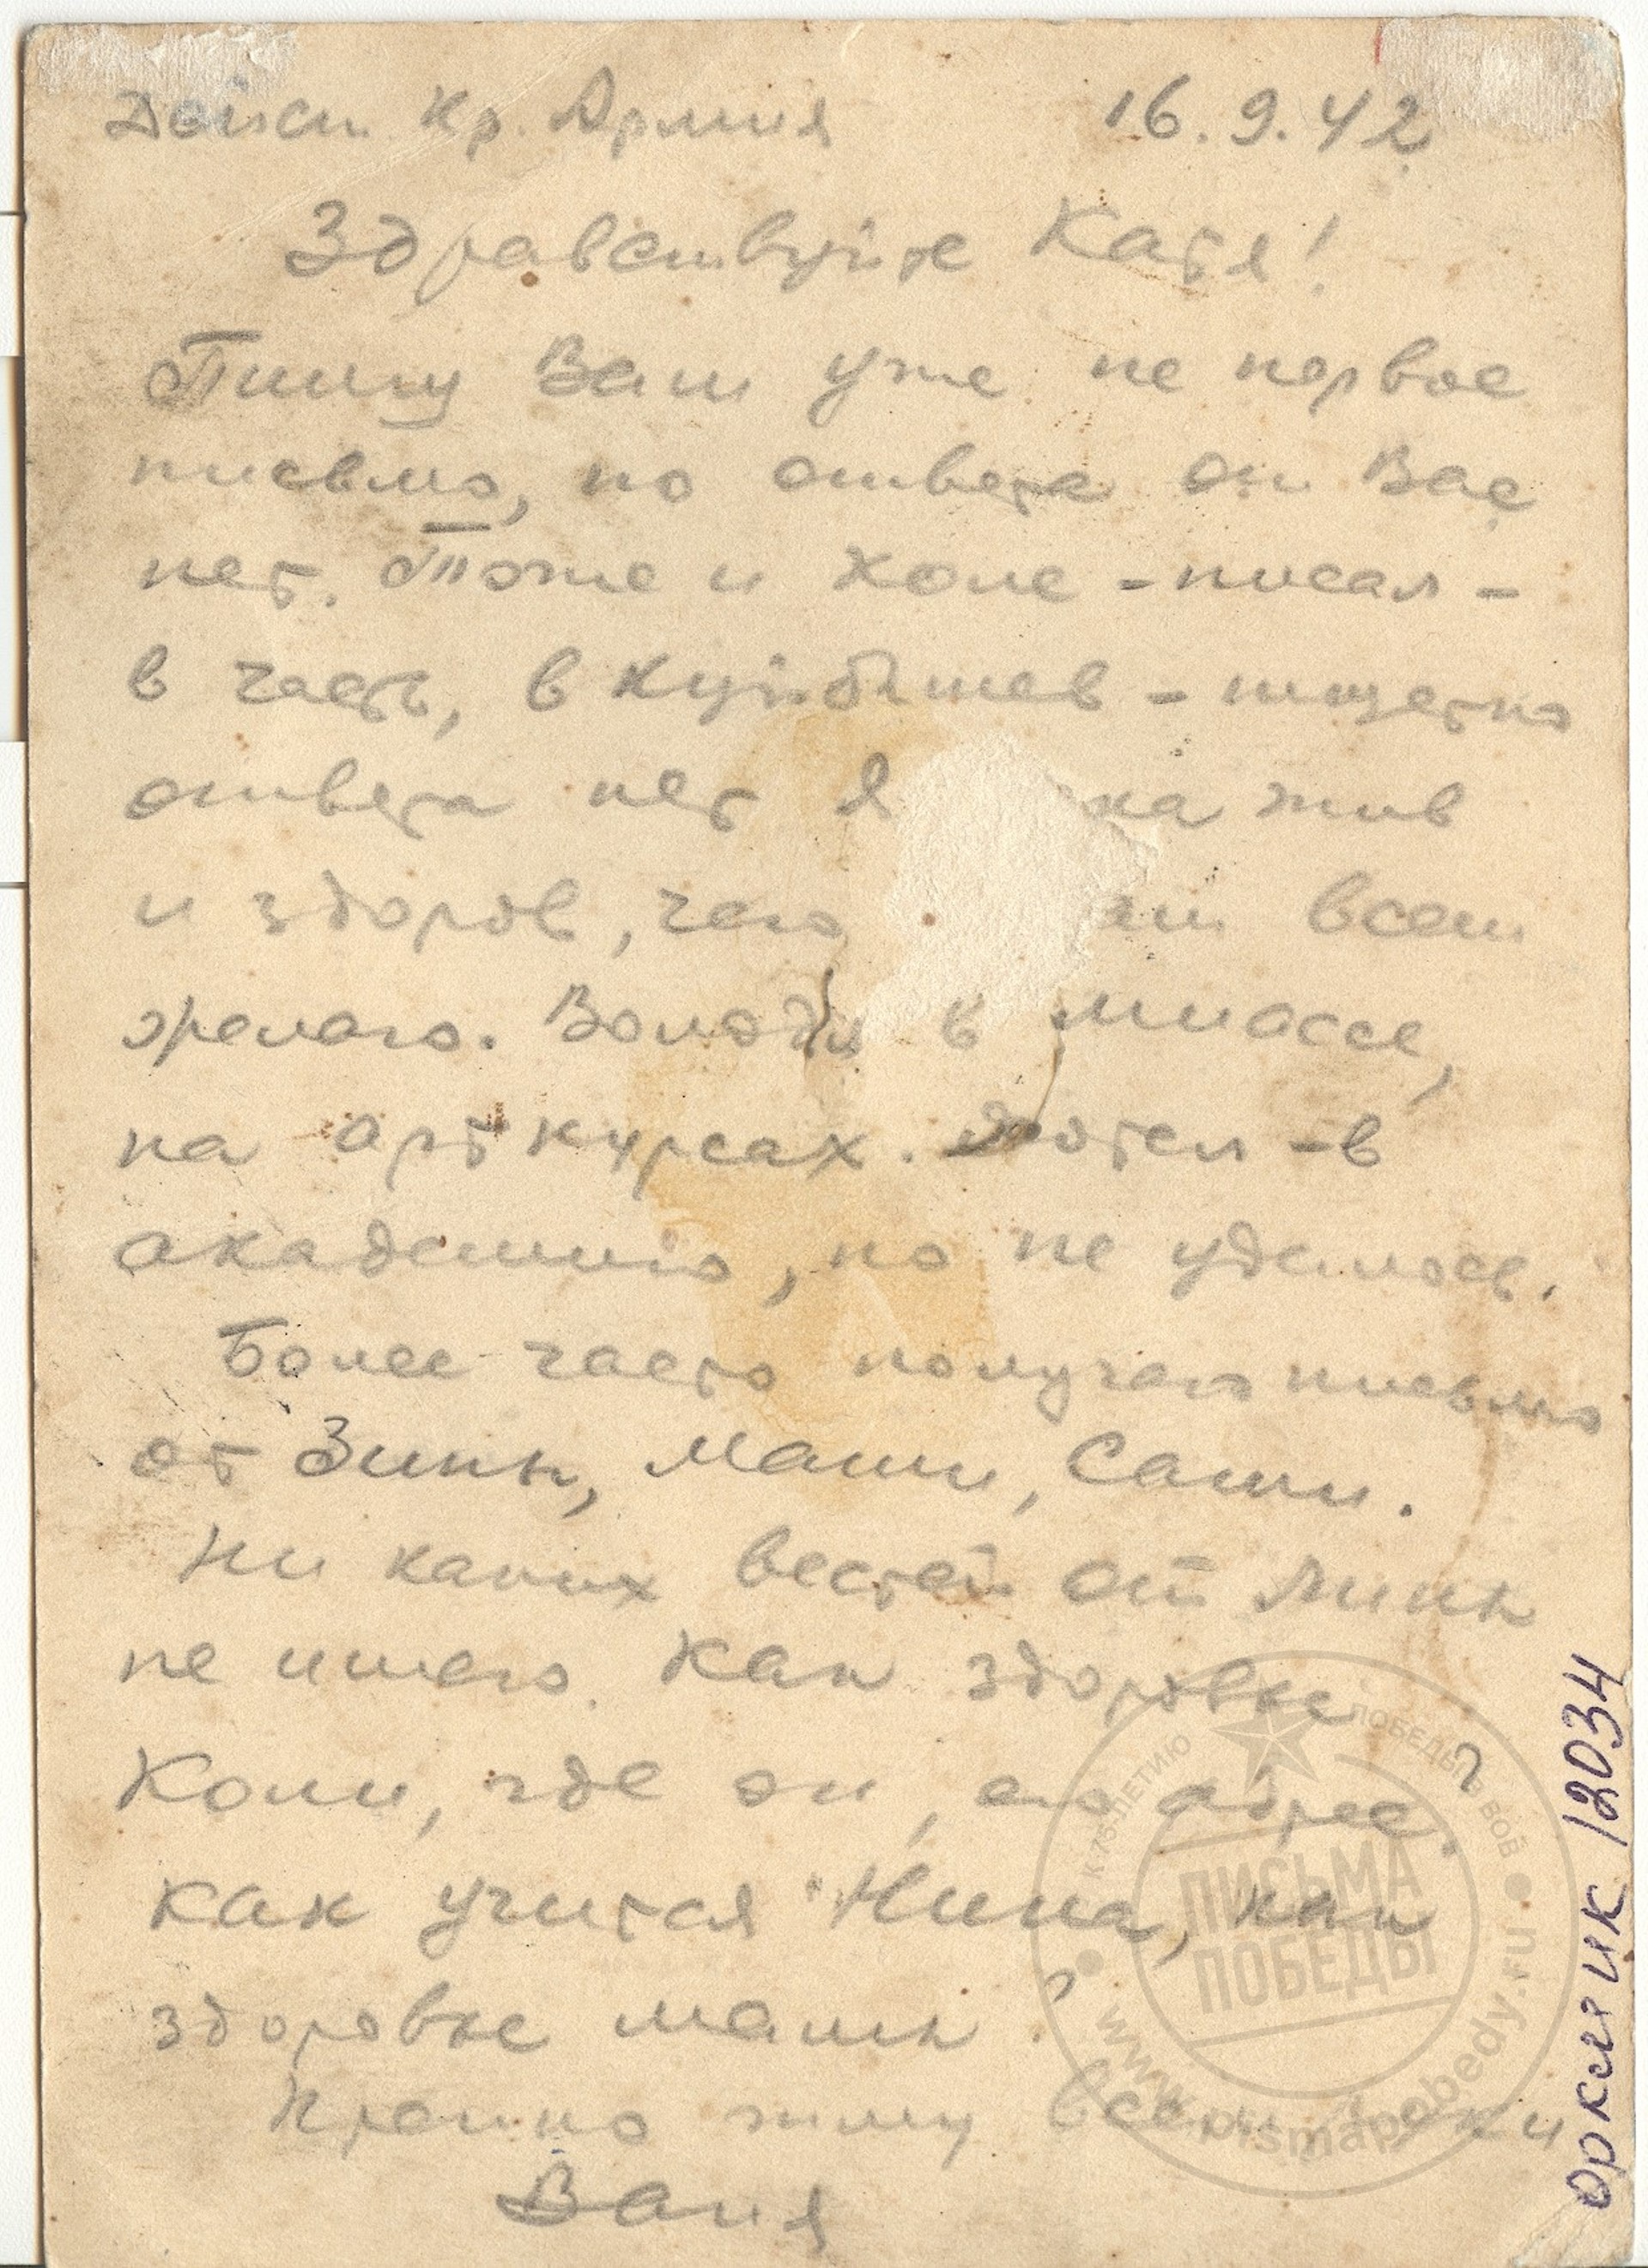 Дейст. Кр. Армия 16.9.42
Здравствуйте Катя!
Пишу Вам уже не первое
письмо, но ответа от Вас
нет. Тоже и Коле - писал -
в часть, в Куйбышев - тщетно
ответа нет Я ка жив
и здоров, чего ам всем
желаю. Володя в Миассе,
на арт курсах. Хотел - в
академию, но не удалось.
Более часто получаю письмо
от Зины, Маши, Саши.
Ни каких вестей от Мины
не имею. Как здоровье
Коли, где он, его адрес?
Как учится Нина, как
здоровье мамы?
Крепко жму всем руки
Ваня
ОРКМ ИК 12034
К 75-ЛЕТИЮ ПОБЕДЫ В ВОВ
ПИСЬМА
ПОБЕДЫ
www.pismapobedy.ru